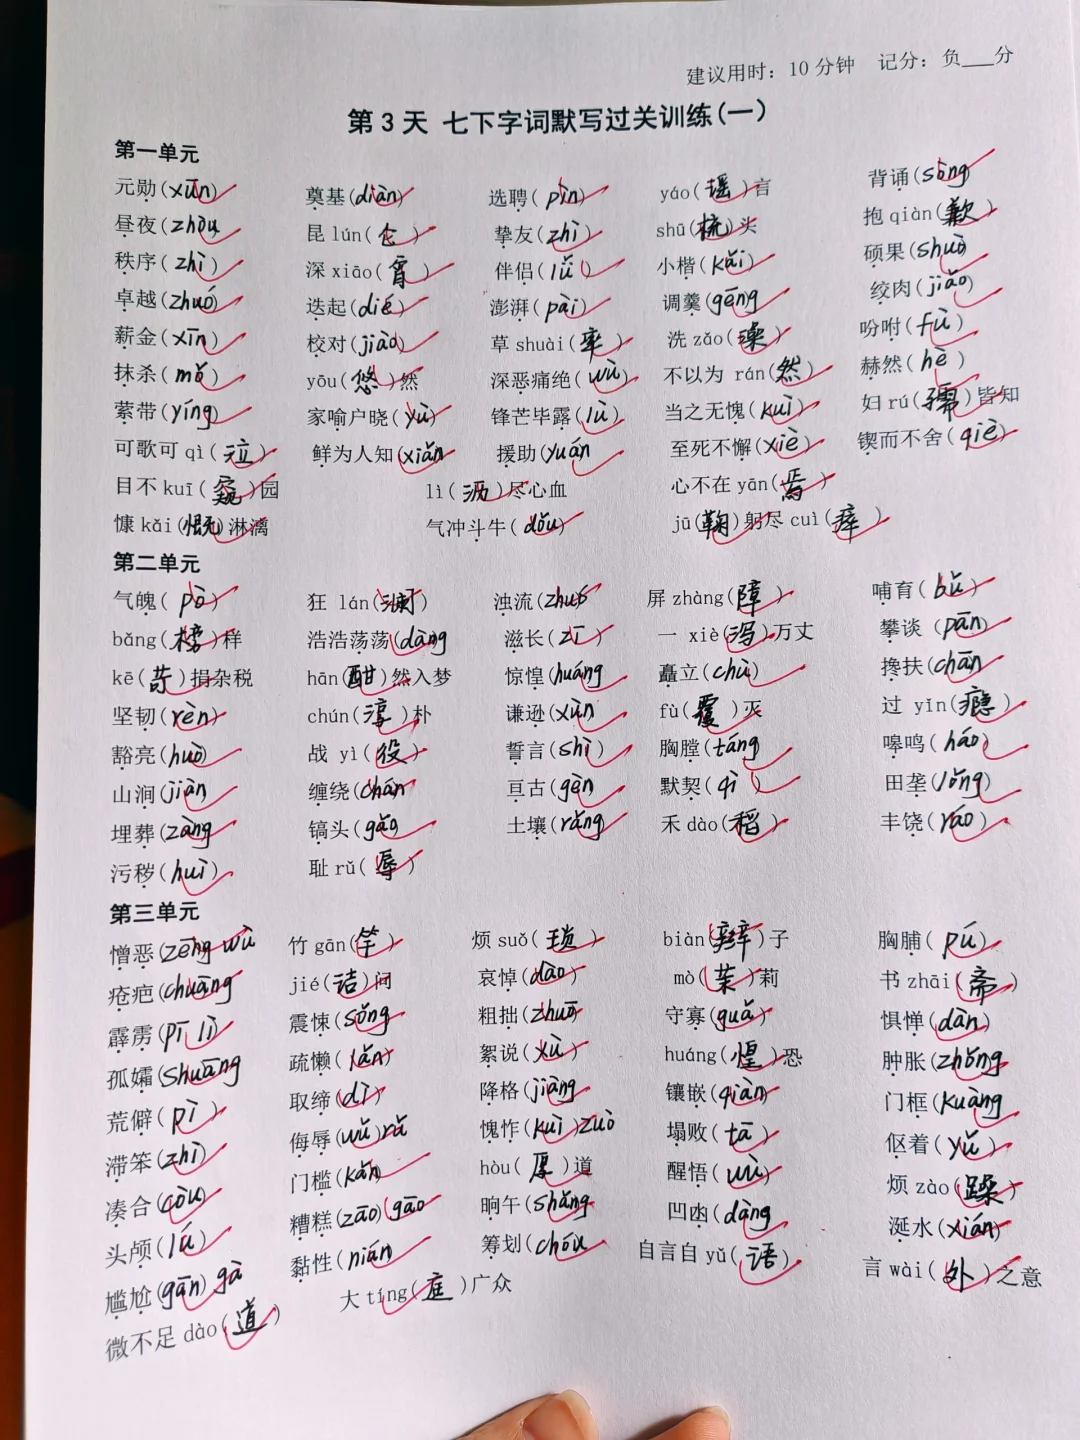 建议用时：10分钟 记分：负___分
第3天 七下字词默写过关训练(一)
第一单元
元勋(xūn) 奠基(diàn) 选聘(pìn) yáo(瑶)言 背诵(sòng)
昼夜(zhòu) 昆lún(仑) 挚友(zhì) shū(梳)头 抱qiàn(歉)
秩序(zhì) 深xiāo(宵) 伴侣(lǚ) 小楷(kǎi) 硕果(shuò)
卓越(zhuó) 迭起(dié) 澎湃(pài) 调羹(gēng) 绞肉(jiǎo)
薪金(xīn) 校对(jiào) 草shuài(率) 洗zǎo(澡) 吩咐(fù)
抹杀(mǒ) yōu(悠)然 深恶痛绝(wù) 不以为rán(然) 赫然(hè)
萦带(yíng) 家喻户晓(yù) 锋芒毕露(lù) 当之无愧(kuì) 妇rú(孺)皆知
可歌可qì(泣) 鲜为人知(xiǎn) 援助(yuán) 至死不懈(xiè) 锲而不舍(qiè)
目不kuī(窥)园 lì(沥)尽心血 心不在yān(焉)
慷kǎi(慨)淋漓 气冲斗牛(dǒu) jū(鞠)躬尽cuì(瘁)
第二单元
气魄(pò) 狂lán(澜) 浊流(zhuó) 屏zhàng(障) 哺育(bǔ)
bǎng(榜)样 浩浩荡荡(dàng) 滋长(zī) 一xiè(泻)万丈 攀谈(pān)
kē(苛)捐杂税 hān(酣)然入梦 惊惶(huáng) 矗立(chù) 搀扶(chān)
坚韧(rèn) chún(淳)朴 谦逊(xùn) fù(覆)灭 过yǐn(瘾)
豁亮(huò) 战yì(役) 誓言(shì) 胸膛(táng) 嗥鸣(háo)
山涧(jiàn) 缠绕(chán) 亘古(gèn) 默契(qì) 田垄(lǒng)
埋葬(zàng) 镐头(gǎo) 土壤(rǎng) 禾dào(稻) 丰饶(ráo)
污秽(huì) 耻rǔ(辱)
第三单元
憎恶(zēng wù 竹gān(竿) 烦suǒ(琐) biàn(辫)子 胸脯(pú)
疮疤(chuāng jié(诘)问 哀悼(dào) mò(茉)莉 书zhāi(斋)
霹雳(pī lì) 震悚(sǒng 粗拙(zhuō 守寡(guǎ) 惧惮(dàn)
孤孀(shuāng 疏懒(lǎn) 絮说(xù) huáng(惶)恐 肿胀(zhǒng
荒僻(pì) 取缔(dì) 降格(jiàng 镶嵌(qiàn) 门框(kuàng
滞笨(zhì) 侮辱(wǔ)rǔ 愧怍(kuì)zuò 塌败(tā) 伛着(yǔ)
凑合(còu) 门槛(kǎn) hòu(厚)道 醒悟(wù) 烦zào(躁)
头颅(lú) 糟糕(zāo)(gāo 晌午(shǎng 凹凼(dàng 涎水(xián)
尴尬(gān)gà 黏性(nián) 筹划(chóu 自言自yǔ(语) 言wài(外)之意
微不足dào(道) 大tíng(庭)广众